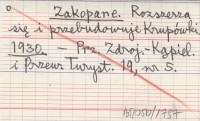 Zakopane. Rozszerza
się i przebudowuje Krupówki
1930. — Prz. Zdroj.-Kąpiel
i Przew. Turyst. 19, nr 5.